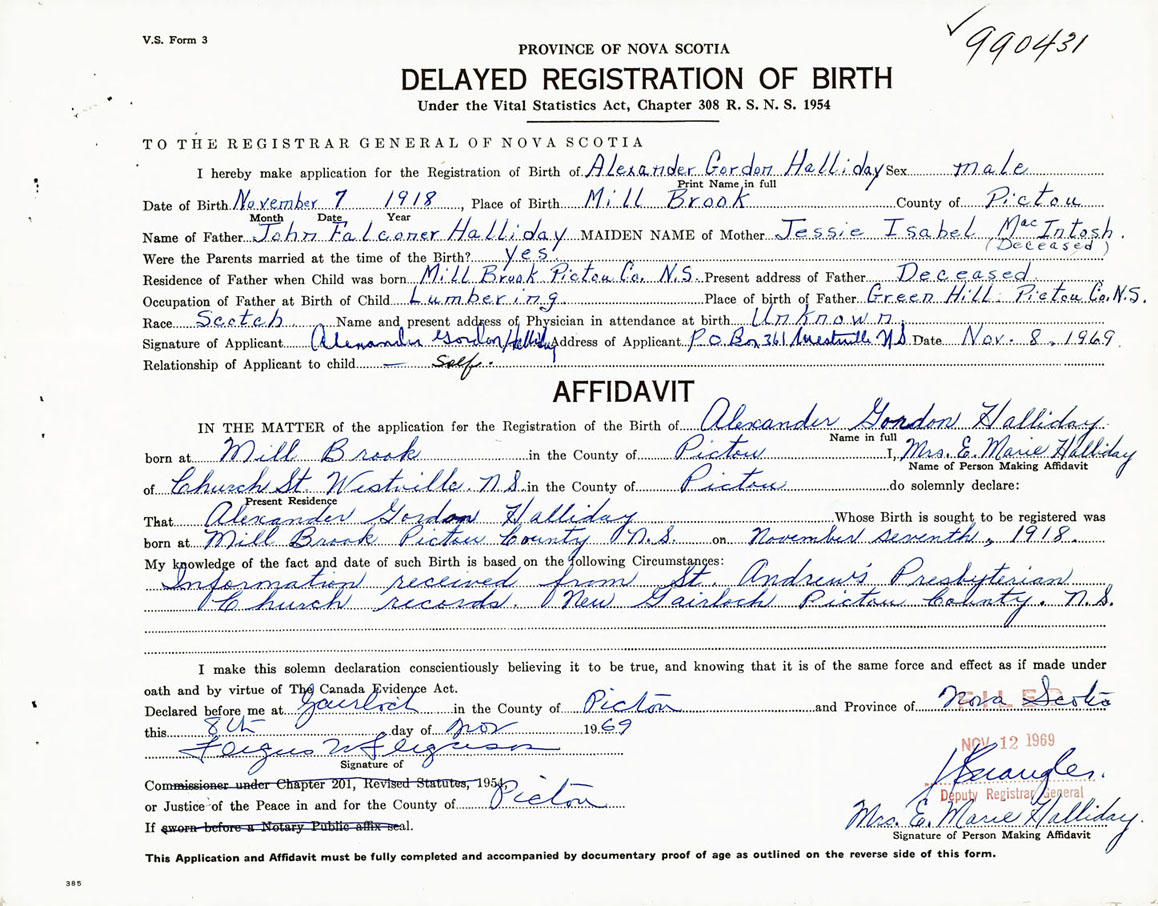 V.S. Form 3
990431
PROVINCE OF NOVA SCOTIA
DELAYED REGISTRATION OF BIRTH
Under the Vital Statistics Act, Chapter 308 R. S. N. S. 1954
TO THE REGISTRAR GENERAL OF NOVA SCOTIA
I hereby make application for the Registration of Birth of Alexander Gordon Halliday Sex male
Print Name in full
Date of Birth November 7 1918, Place of Birth Mill Brook County of Pictou
Month Date Year
Name of Father John Falconer Halliday MAIDEN NAME of Mother Jessie Isabel MacIntosh.
(Deceased)
Were the Parents married at the time of the Birth? yes.
Residence of Father when Child was born Mill Brook Pictou Co. N.S. Present address of Father Deceased
Occupation of Father at Birth of Child Lumbering Place of birth of Father Green Hill. Pictou Co. N.S.
Race Scotch Name and present address of Physician in attendance at birth Unknown
Signature of Applicant Alexander Gordon Halliday Address of Applicant P.O Box 361 Westville N.S Date Nov. 8, 1969.
Relationship of Applicant to child — Self.
AFFIDAVIT
IN THE MATTER of the application for the Registration of the Birth of Alexander Gordon Halliday
Name in full
born at Mill Brook in the County of Pictou I, Mrs. E. Marie Halliday
Name of Person Making Affidavit
of Church St. Westville. N.S. in the County of Pictou do solemnly declare:
Present Residence
That Alexander Gordon Halliday Whose Birth is sought to be registered was
born at Mill Brook Pictou County N.S. on November seventh, 1918.
My knowledge of the fact and date of such Birth is based on the following Circumstances:
Information received from St. Andrew's Presbyterian
Church records. New Gairloch Pictou County. N.S.
I make this solemn declaration conscientiously believing it to be true, and knowing that it is of the same force and effect as if made under
oath and by virtue of The Canada Evidence Act.
Declared before me at Gairloch in the County of Pictou and Province of Nova Scotia
FILED
this 8th day of Nov 1969
NOV 12 1969
Fergus W Ferguson
Signature of
Commissioner under Chapter 201, Revised Statutes, 1954,
or Justice of the Peace in and for the County of Pictou
Deputy Registrar General
Mrs. E. Marie Halliday.
If sworn before a Notary Public affix seal.
Signature of Person Making Affidavit
This Application and Affidavit must be fully completed and accompanied by documentary proof of age as outlined on the reverse side of this form.
385